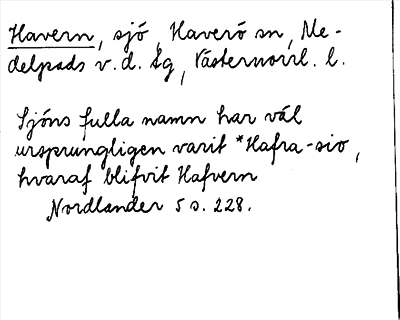 Havern, sjö, Haverö sn, Me-
delpads v. d. tg, Västernorrl. l.
Sjöns fulla namn har väl
ursprungligen varit *Hafra-sio,
hvaraf blifvit Hafvern
Nordlander 5 s. 228.